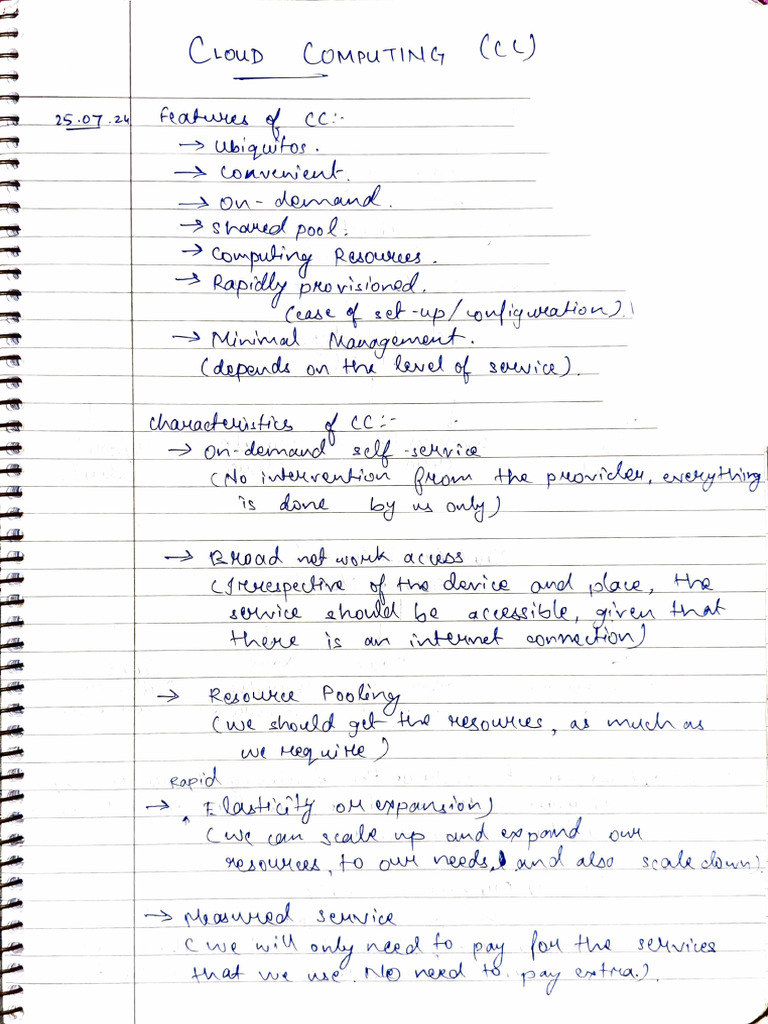 CLOUD COMPUTING (CC)
25.07.24 Features of CC:-
→ Ubiquitos.
→ Convenient.
→ On-demand.
→ Shared pool.
→ Computing Resources.
→ Rapidly provisioned.
(ease of set-up/configuration).
→ Minimal Management.
(depends on the level of service).
Characteristics of CC:-
→ On-demand self-service
(No intervention from the provider, everything
is done by us only)
→ Broad network access
(Irrespective of the device and place, the
service should be accessible, given that
there is an internet connection)
→ Resource Pooling
(we should get the resources, as much as
we require)
Rapid
→ ^ Elasticity or expansion)
(we can scale up and expand our
resources, to our needs, and also scale down).
→ Measured service
(we will only need to pay for the services
that we use. No need to pay extra.).